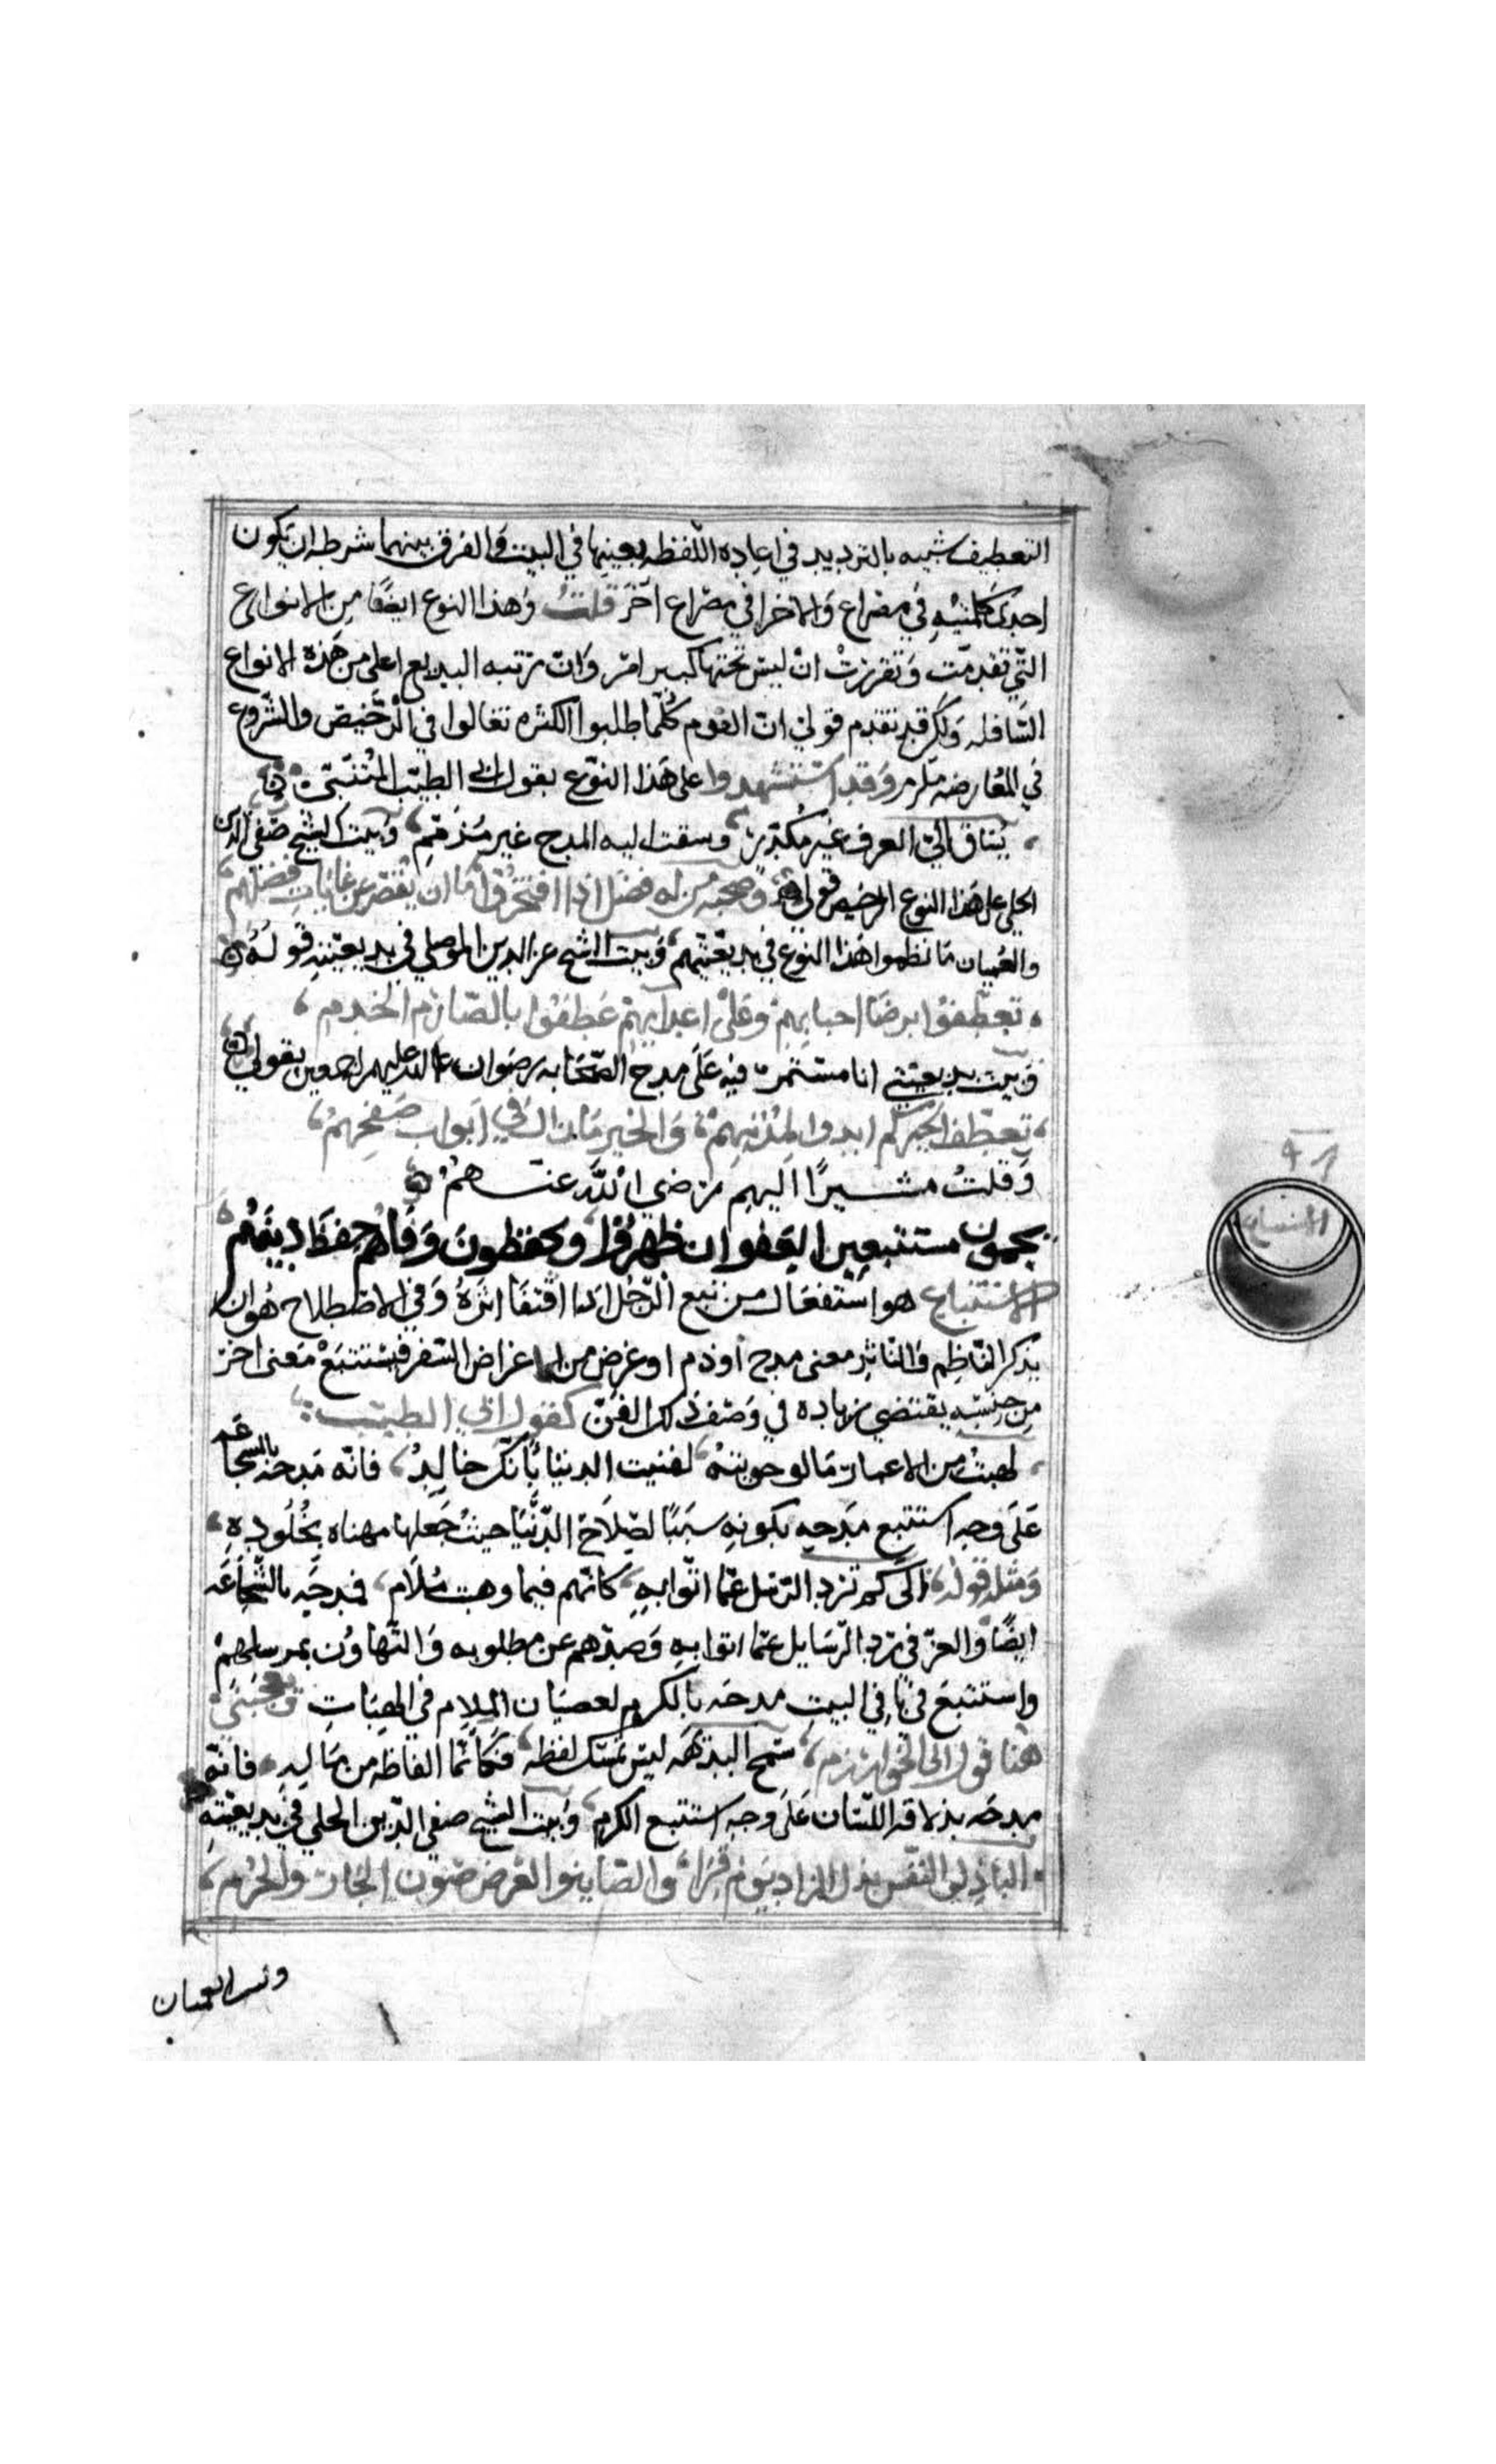 التعطيف شبيه بالترديد في اعاده اللفظه بعينها في البيت والفرق بينهما شرطه ان يكون
احدى كلمتيه في مصراع والاخرا في مصراع اخر قلت وهذا النوع ايضا من الانواع
التي تقدمت وتقررت ان ليس تحتها كبير امر وان رتبه البديع اعلى من هذه الانواع
السافله ولكن قد تقدم قولي ان القوم كلما طلبوا الكثره تغالوا في الرخيص والشروع
في المعارضه ملزم وقد استشهدوا على هذا النوع بقول ابي الطيب المتنبي
الي العرف غير مكدر وسقت اليه المدح غير مذمم وبيت الشيخ صفي الدين
الحلي على هذا النوع الرخيص قوله وصحبه من له فضل اذا افتخروا ما ان يقصر عن غايات فضلهم
والعميان ما نظموا هذا النوع في بديعيتهم وبيت الشيخ عز الدين الموصلي في بديعيته قوله
تعطفوا برضا احبابهم وعلى اعدايهم عطفوا بالصارم الخدم
وبيت بديعيتي انا مستمر فيه على مدح الصحابه رضوان الله عليهم اجمعين بقولي
تعطف الخير كم ابدوا لمذنبهم والخير مازال في ابواب صفحهم
وقلت مشيرا اليهم رضي الله عنهم
يحمون مستتبعين العفو ان ظهروا ويحفظون وفاهم حفظ دينهم
الاستتباع هو استفعال من تبع الرجل اذا اقتفا اثره وفي الاصطلاح هو ان
يذكر الناظم والناثر معنى مدح او ذم او غرض من اغراض الشعر فيستتبع معنى اخر
من جنسه يقتضي زياده في وصف ذلك الفن كقول ابي الطيب
نهبت من الاعمار ما لو حويته لهنيت الدنيا بانك خالد فانه مدحه بالشجاعه
على وجه استتبع مدحه بكونه سببا لصلاح الدنيا حيث جعلها مهناه بخلوده
ومثله قوله الى كم ترد الرسل عما اتوا به كانهم فيما وهبت ملام فمدحه بالشجاعه
ايضا والعز في رد الرسايل عما اتوا به وصدهم عن مطلوبه والتهاون بمرسلهم
واستتبع في باقي البيت مدحه بالكرم لعصيان الملام في الهبات ويعجبني
هنا قول ابي الخوارزم سمح البديهه ليس يمسك لفظه فكانما الفاظه من ماله فانه
مدحه بذلاقه اللسان على وجه استتبع الكرم وبيت الشيخ صفي الدين الحلي في بديعيته
الباذلوا النفس بذل الزاد يوم قرا والصاينو العرض صون الجار والحرم
وبيت العميان